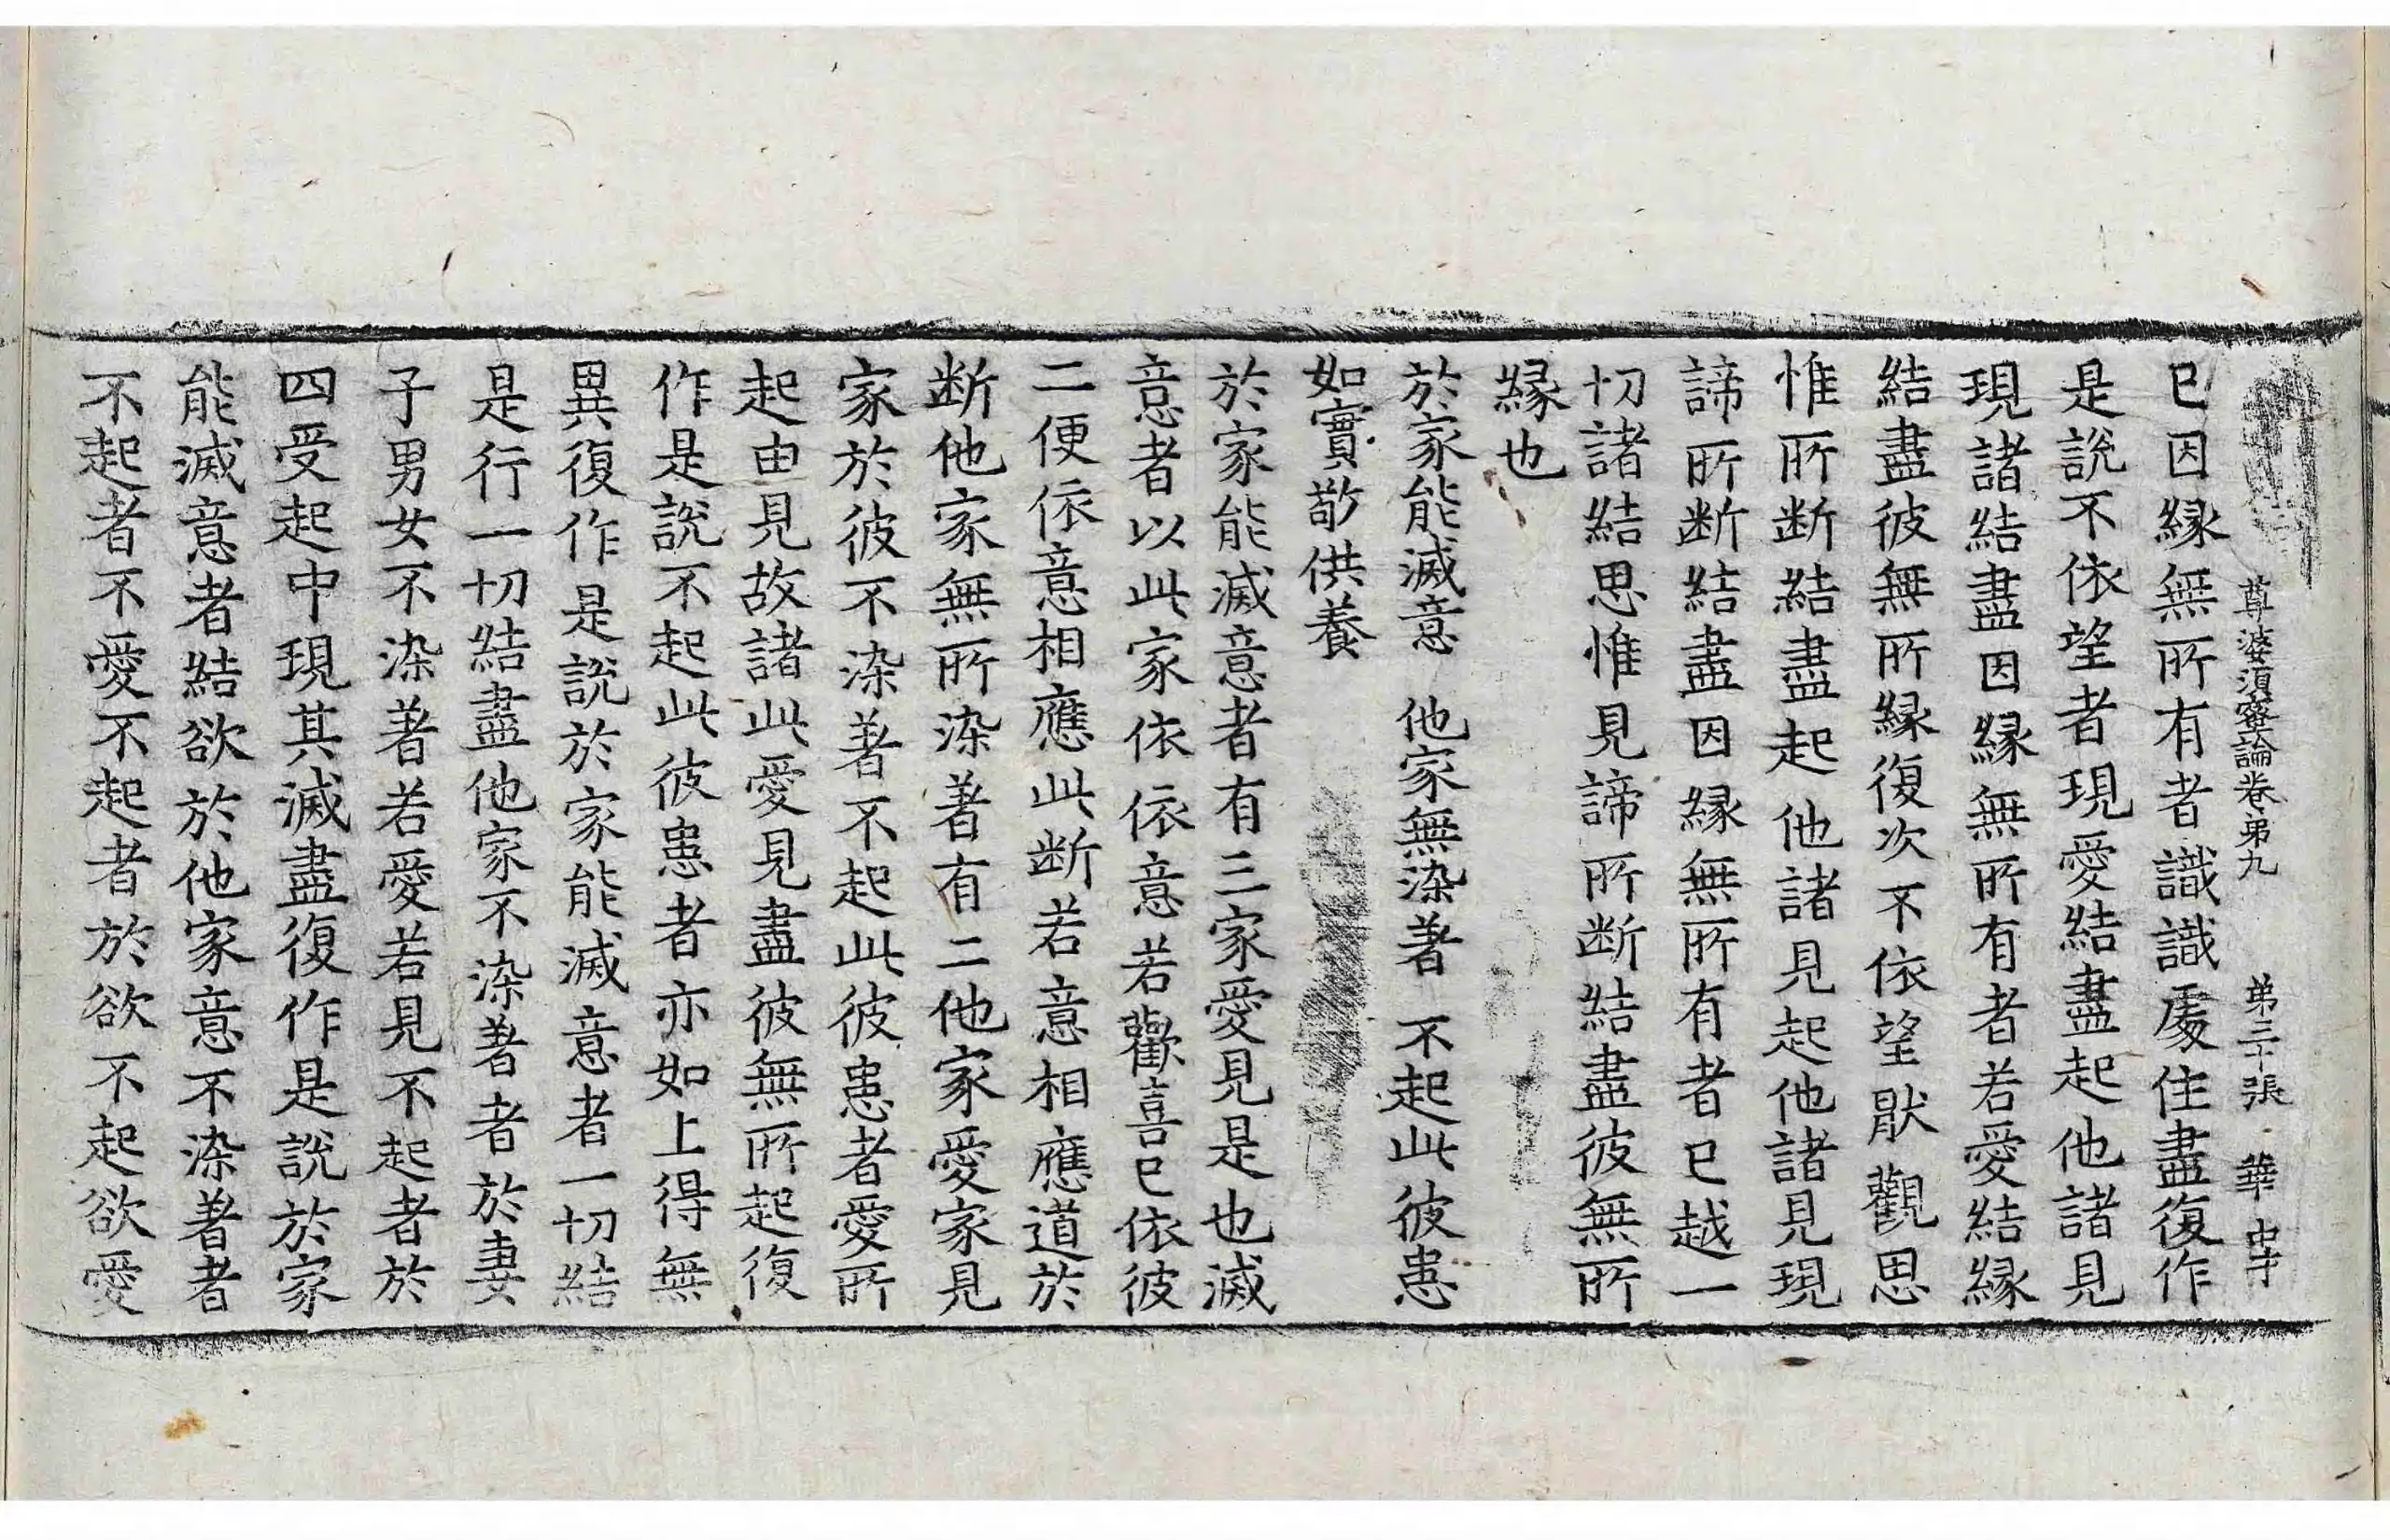 尊婆須蜜論卷第九 第三十張 華
已因緣無所有者識識處住盡復作
是說不依望者現愛結盡起他諸見
現諸結盡因緣無所有者若愛結緣
結盡彼無所緣復次不依望猒觀思
惟所断結盡起他諸見起他諸見現
諦所断結盡因緣無所有者已越一
切諸結思惟見諦所断結盡彼無所
緣也
於家能滅意 他家無染著 不起此彼恚
如實敬供養
於家能滅意者有三家愛見是也滅
意者以此家依依依意若歡喜已依彼
二便依意相應此断若意相應道於
断他家無所染著有二他家愛家見
家於彼不染著不起此彼恚者愛所
起由見故諸此愛見盡彼無所起復
作是說不起此彼恚者亦如上得無
異復作是說於家能滅意者一切結
是行一切結盡他家不染著者於妻
子男女不染著若愛若見不起者於
四受起中現其滅盡復作是說於家
能滅意者結欲於他家意不染著者
不起者不愛不起者於欲不起欲愛